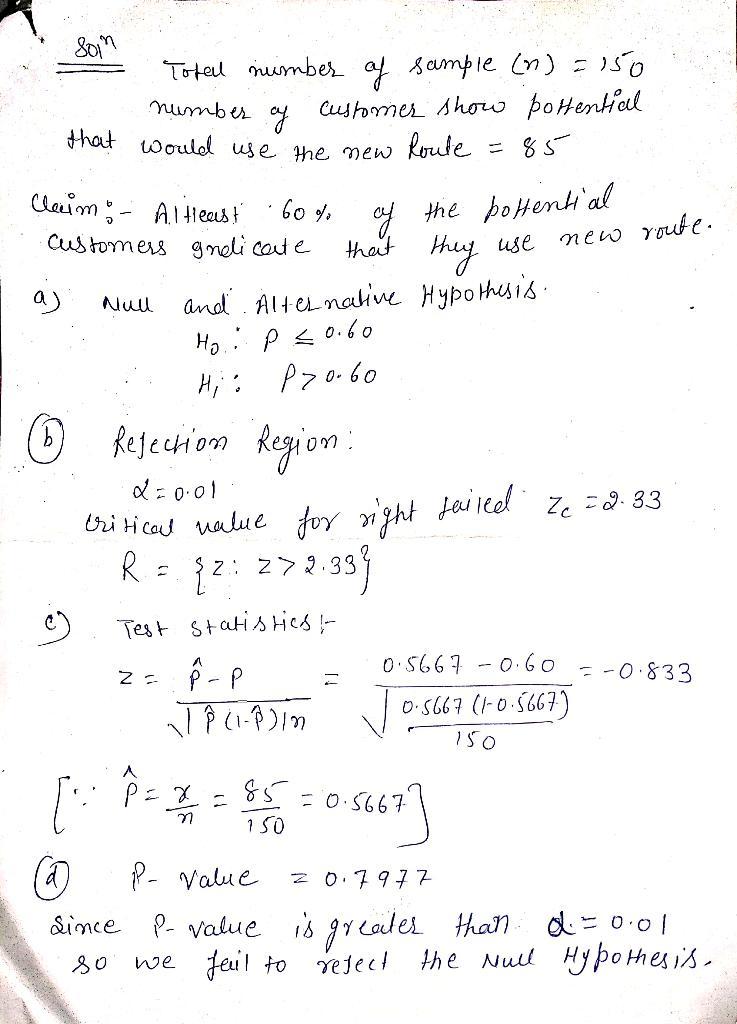 Solⁿ
Total number of sample (n) = 150
number of customer show pottential
that would use the new Route = 85
Claim :- Atleast 60 % of the pottential
customers indicate that they use new route.
a) Null and Alternative Hypothesis.
H₀ : P ≤ 0.60
H₁ : P > 0.60
(b) Rejection Region :
α = 0.01
Critical value for right tailed Zc = 2.33
R = {z : z > 2.33}
c) Test statistics :-
z = (p̂ - p) / √(p̂(1-p̂)/n) = (0.5667 - 0.60) / √(0.5667 (1-0.5667) / 150) = -0.833
[∵ p̂ = x/n = 85/150 = 0.5667]
(d) P-value = 0.7977
Since P-value is greater than α = 0.01
so we fail to reject the Null Hypothesis.